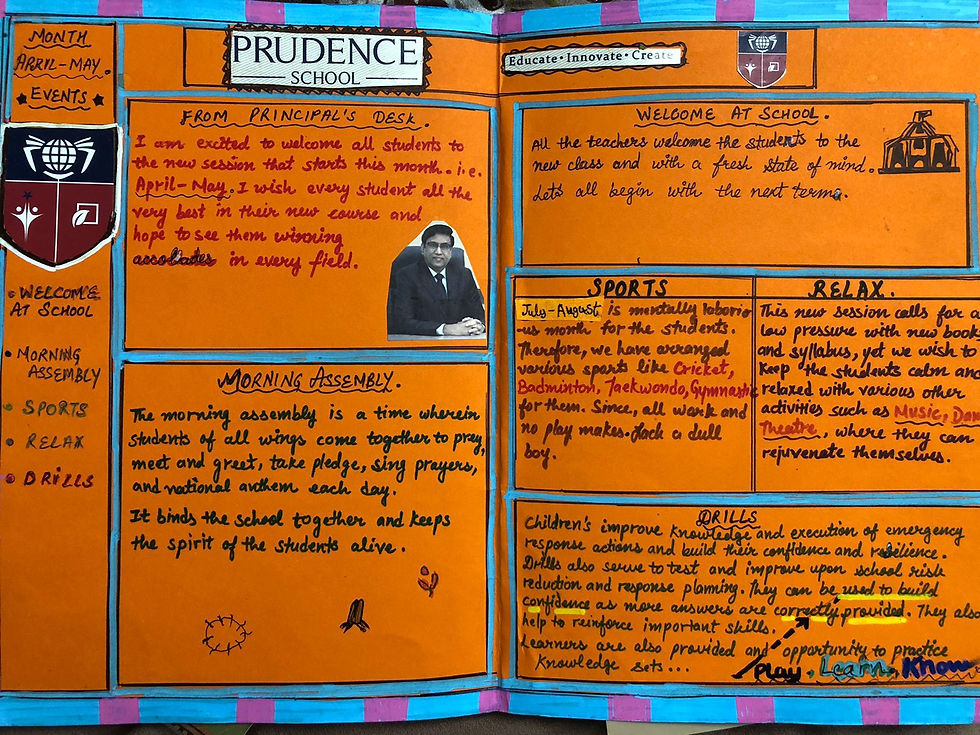 MONTH
APRIL-MAY.
EVENTS
• WELCOME
AT SCHOOL
• MORNING
ASSEMBLY
• SPORTS
• RELAX
• DRILLS
PRUDENCE
SCHOOL
FROM PRINCIPAL'S DESK.
I am excited to welcome all students to
the new session that starts this month. i.e.
April-May. I wish every student all the
very best in their new course and
hope to see them winning
in every field.
MORNING ASSEMBLY.
The morning assembly is a time wherein
students of all wings come together to pray,
meet and greet, take pledge, sing prayers,
and national anthem each day.
It binds the school together and keeps
the spirit of the students alive.
Educate • Innovate • Create
WELCOME AT SCHOOL.
All the teachers welcome the students to the
new class and with a fresh state of mind.
Lets all begin with the next terms.
SPORTS
July-August is mentally laborio
-us month for the students.
Therefore, we have arranged
various sports like Cricket,
Badminton, Taekwondo, Gymnastic
for them. Since, all work and
no play makes. Jack a dull
boy.
RELAX.
This new session calls for a
low pressure with new book
and syllabus, yet we wish to
Keep the students calm and
relaxed with various other
activities such as Music, Da
Theatre, where they can
rejuvenate themselves.
DRILLS
Children's improve Knowledge and execution of emergency
response actions and build their confidence and
Drills also serve to test and improve upon school risk
reduction and response planning. They can be used to build
confidence as more answers are correctly provided. They also
help to reinforce important skills.
Learners are also provided and opportunity to practice
Knowledge sets...
Play. Learn. Know